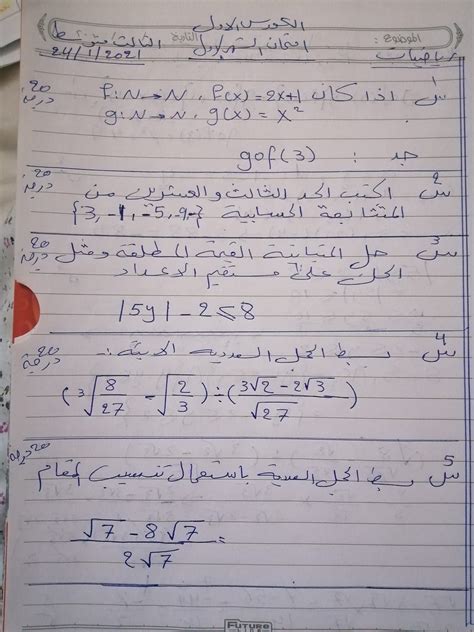 الكورس الاول
الموضوع : امتحان الشهر الاول الثالث متوسط
رياضيات 24/1/2021
س1 اذا كان f:N→N , f(x)=2x+1 20 درجة
g:N→N , g(x)=x²
جد : gof(3)
س2 اكتب الحد الثالث والعشرين من 20 درجة
المتتابعة الحسابية {3,-1,-5,-9..}
س3 حل المتباينة القيمة المطلقة ومثل 20 درجة
الحل على مستقيم الاعداد
|5y| - 2 ≤ 8
س4 بسط الجمل العددية الاتية :- 20 درجة
(³√(8/27) - √(2/3)) ÷ ((3√2 - 2√3)/√27)
س5 بسط الجمل العددية باستعمال تنسيب المقام 20 درجة
(√7 - 8√7)/(2√7) =
FUTURE